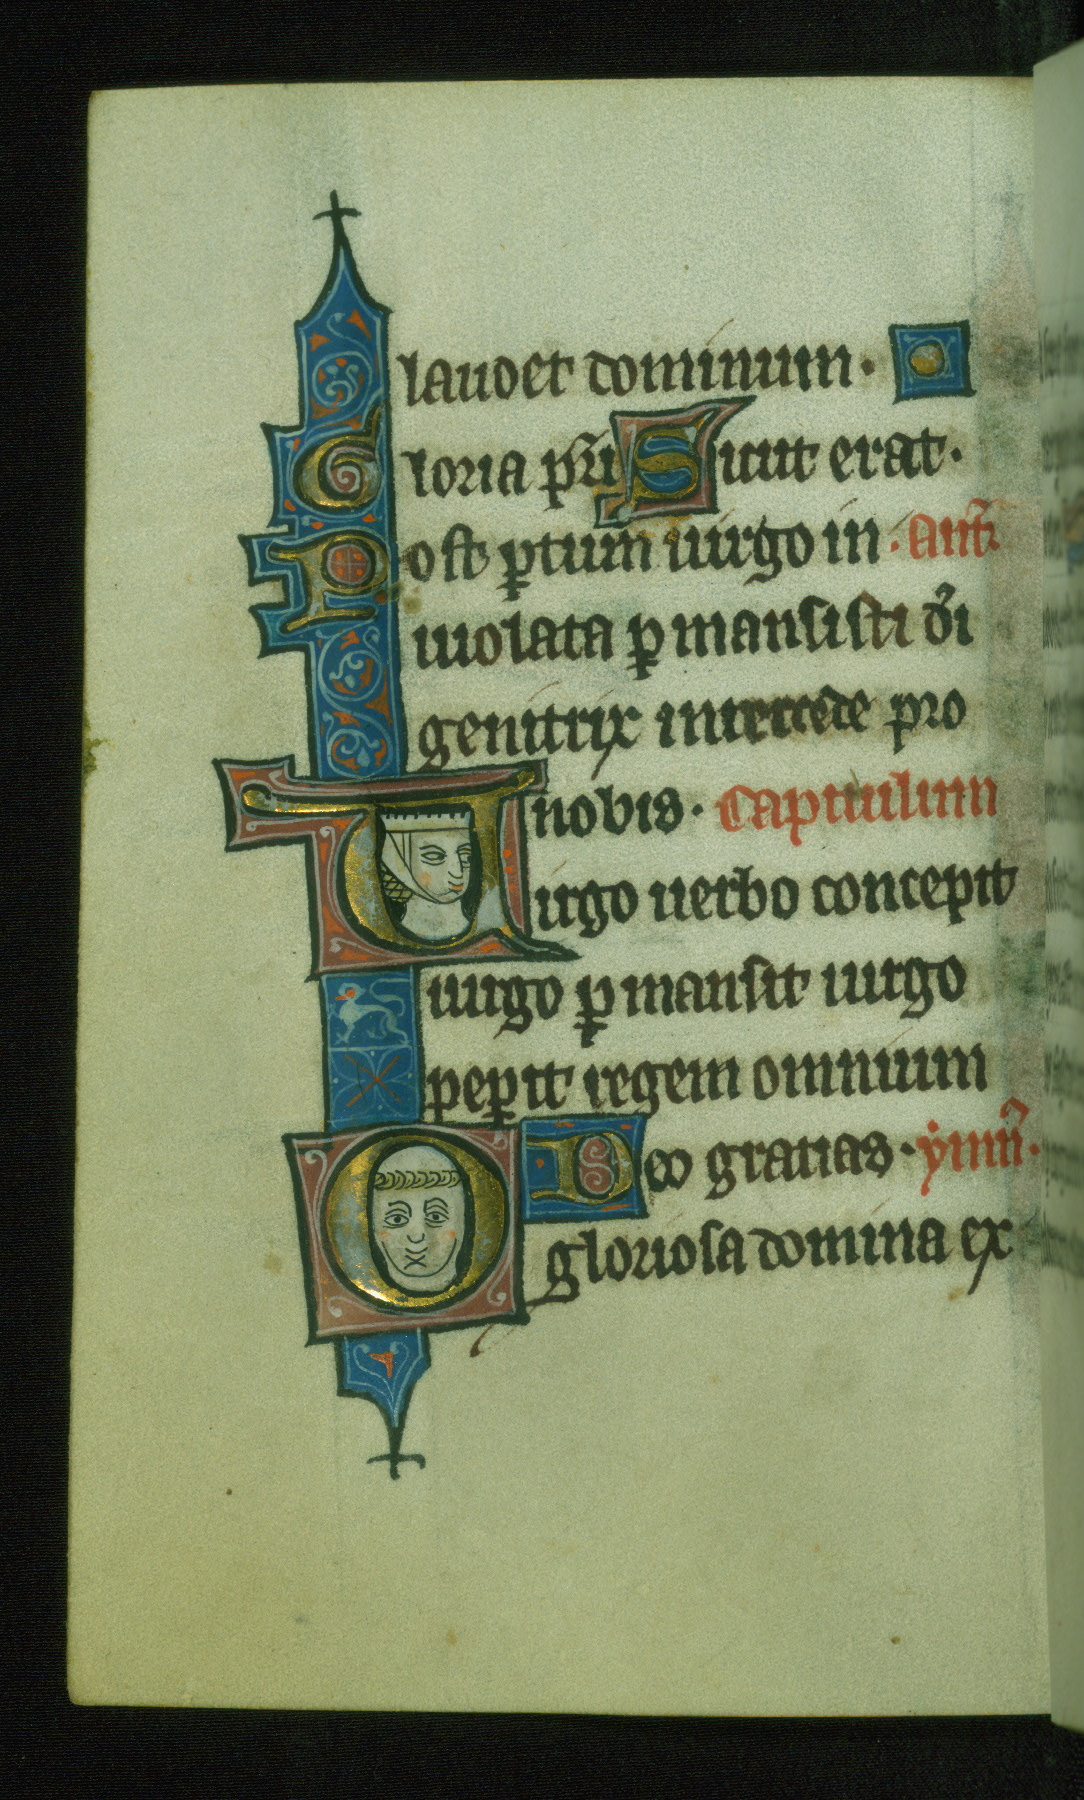 laudet dominum.
Gloria pr̃i Sicut erat.
Post ꝑtum uirgo in. Ant̃.
uiolata ꝑmansisti d̃i
genitrix intercede pro
nobis. Capitulum
Uirgo uerbo concepit
uirgo ꝑmansit uirgo
peperit regem omnium
Deo gratias. ymñ.
O gloriosa domina ex